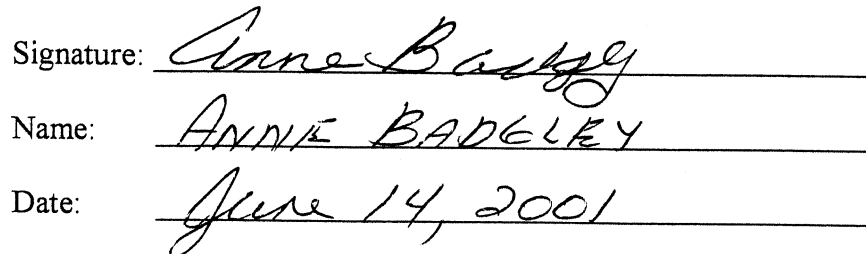 Signature: Anne Badgley
Name: ANNE BADGLEY
Date: June 14, 2001